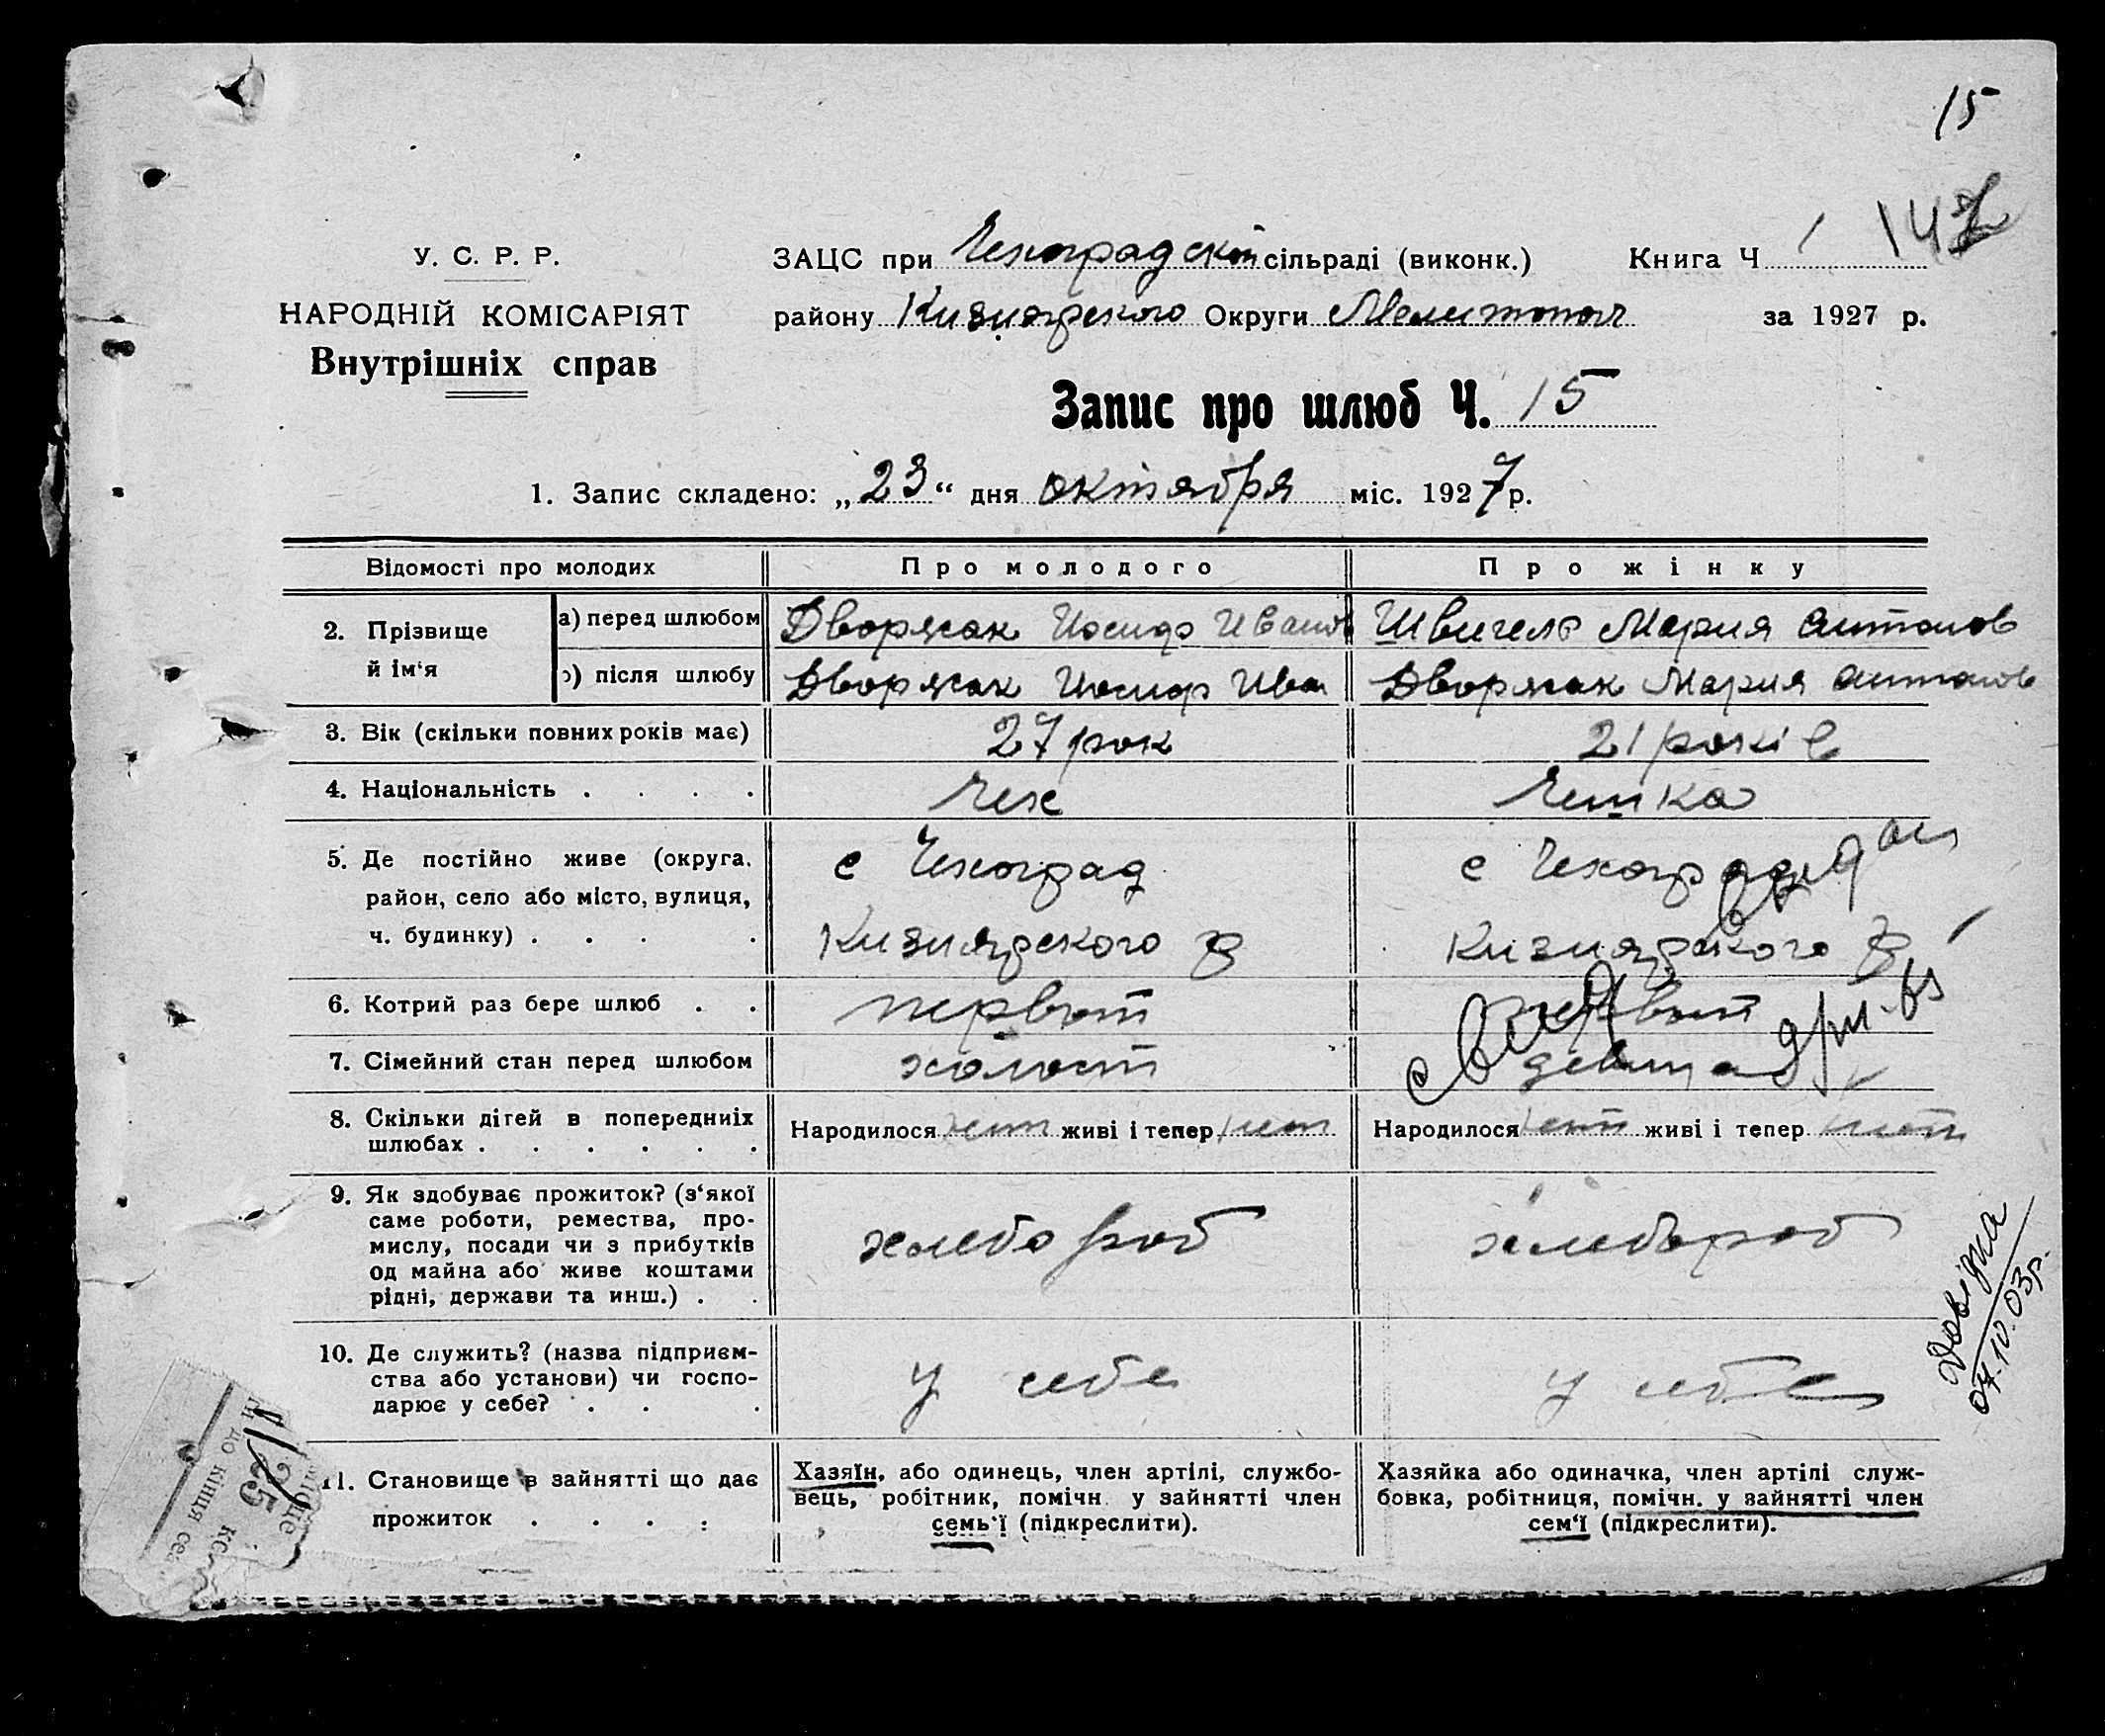 15
147
У. С. Р. Р.
НАРОДНІЙ КОМІСАРІЯТ
Внутрішніх справ
ЗАЦС при Чехоградской сільраді (виконк.) Книга Ч 1
району Кизиярского Округи Мелитопол за 1927 р.
Запис про шлюб Ч. 15
1. Запис складено: „23“ дня октября міс. 1927 р.
Відомості про молодих Про молодого Про жінку
2. Прізвище й ім‘я
а) перед шлюбом Дворжак Иосиф Иванов Швигель Мария Антонов
після шлюбу Дворжак Иосиф Ива Дворжак Мария Антонов
3. Вік (скільки повних років має) 27 рок 21 років
4. Національність . . . . Чех Чешка
5. Де постійно живе (округа, с Чехоград с Чехоград
район, село або місто, вулиця,
ч. будинку) . . . . Кизиярского р Кизиярского р
6. Котрий раз бере шлюб . . первый первый
7. Сімейний стан перед шлюбом холост девица
8. Скільки дітей в попередниіх
шлюбах . . . . . . Народилося нет живі і тепер нет Народилося нет живі і тепер нет
9. Як здобуває прожиток? (з‘якої
саме роботи, ремества, про-
мислу, посади чи з прибутків
од майна або живе коштами
рідні, держави та инш.) . . хлебороб хлебороб
10. Де служить? (назва підприєм-
ства або установи) чи госпо-
дарює у себе? . . . у себе у себе
11. Становище в зайнятті що дає
прожиток . . . . :
Хазяїн, або одинець, член артілі, службо-
вець, робітник, помічн. у зайнятті член
семь‘ї (підкреслити).
Хазяйка або одиначка, член артілі служ-
бовка, робітниця, помічн. у зайнятті член
сем‘ї (підкреслити).
Довідка
07.10.03р.
до кінця
25